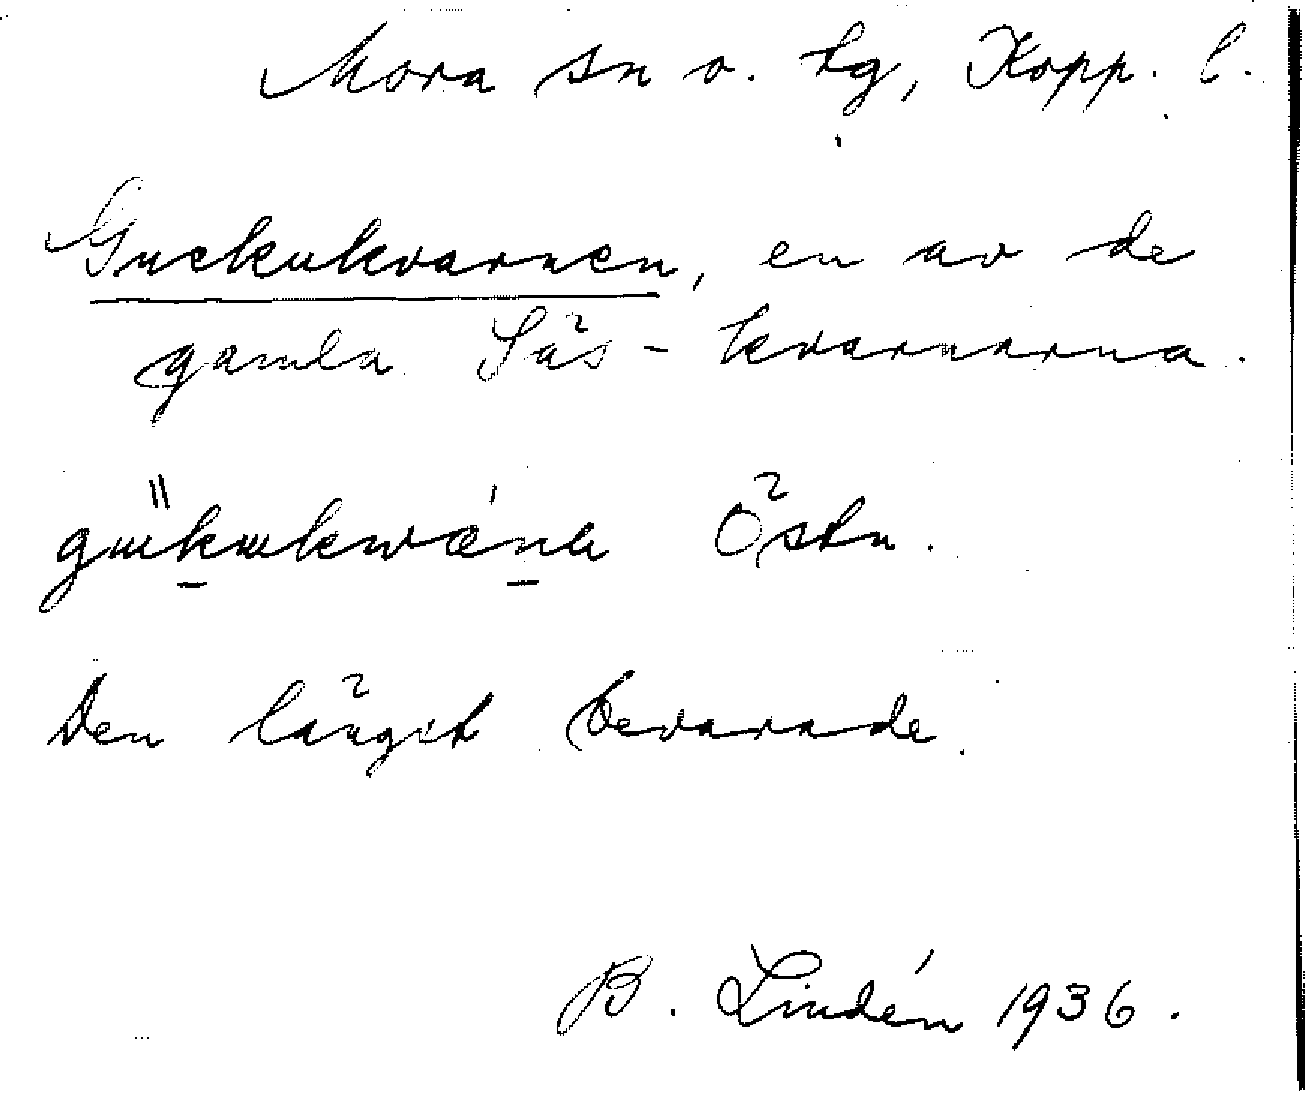 Mora sn o. tg, Kopp. l.
Guckukvarnen, en av de
gamla Säs-kvarnarna.
Östn.
Den längst bevarade.
B. Lindén 1936.